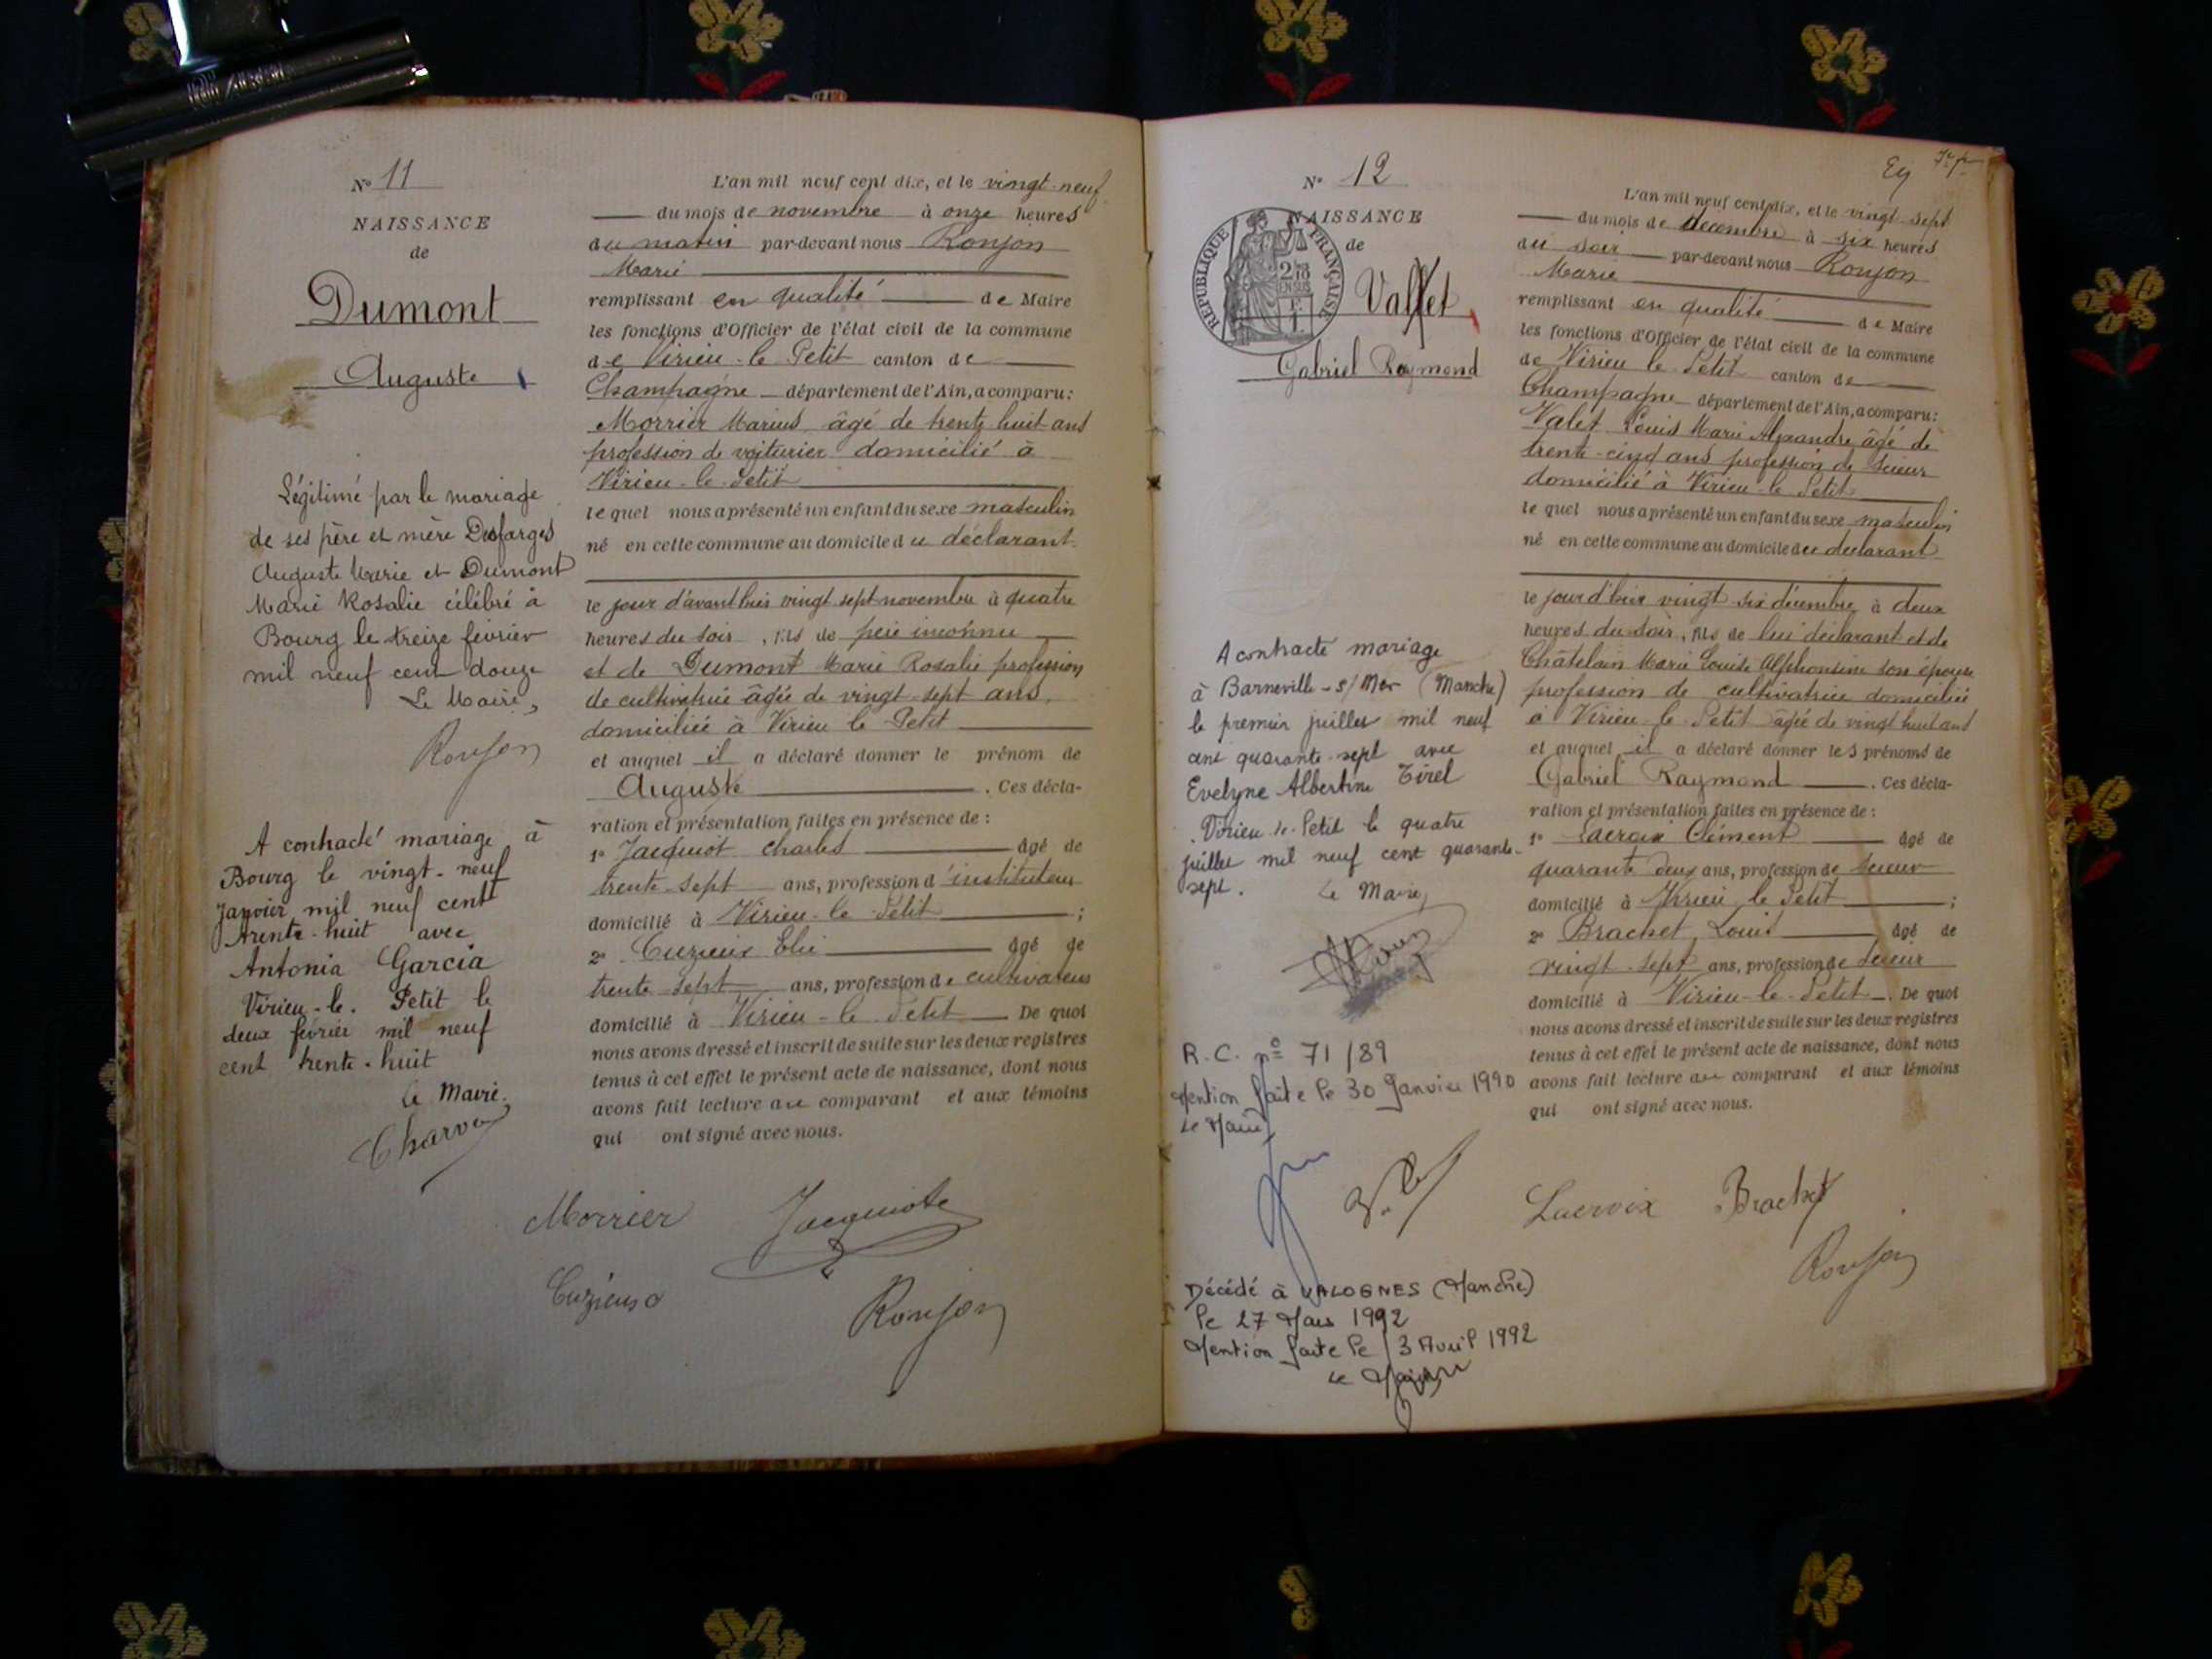 N° 11
NAISSANCE
de
Dumont
Auguste
Légitimé par le mariage
de ses père et mère Desfarges
Auguste Marie et Dumont
Marie Rosalie célébré à
Bourg le treize février
mil neuf cent douze
Le Maire,
Roujon
A contracté mariage à
Bourg le vingt-neuf
janvier mil neuf cent
trente-huit avec
Antonia Garcia
Virieu-le-Petit le
deux février mil neuf
cent trente-huit
Le Maire,
L'an mil neuf cent dix, et le vingt-neuf
du mois de novembre à onze heures
du matin par-devant nous Roujon
Marie
remplissant en qualité de Maire
les fonctions d'Officier de l'état civil de la commune
de Virieu-le-Petit canton de
Champagne département de l'Ain, a comparu:
Morrier Marius âgé de trente huit ans
profession de voiturier domicilié à
Virieu-le-Petit
lequel nous a présenté un enfant du sexe masculin
né en cette commune au domicile du déclarant
le jour d'avant hier vingt sept novembre à quatre
heures du soir, fils de père inconnu
et de Dumont Marie Rosalie profession
de cultivatrice âgée de vingt-sept ans,
domiciliée à Virieu le Petit
et auquel il a déclaré donner le prénom de
Auguste. Ces décla-
ration et présentation faites en présence de:
1° Jacquiot Charles âgé de
trente-sept ans, profession d'instituteur
domicilié à Virieu-le-Petit;
2° Cuzieux Elie âgé de
trente-sept ans, profession de cultivateur
domicilié à Virieu-le-Petit De quoi
nous avons dressé et inscrit de suite sur les deux registres
tenus à cet effet le présent acte de naissance, dont nous
avons fait lecture au comparant et aux témoins
qui ont signé avec nous.
Morrier Jacquiot
Cuzieux
Roujon
N° 12
NAISSANCE
de
RÉPUBLIQUE FRANÇAISE
Vallet
Gabriel Raymond
A contracté mariage
à Barneville-s/Mer (Manche)
le premier juillet mil neuf
cent quarante-sept avec
Evelyne Albertine Tirel
Virieu-le-Petit le quatre
juillet mil neuf cent quarante-
sept. Le Maire,
R.C. n° 71/89
Mention faite le 30 Janvier 1990
Le Maire
Décédé à VALOGNES (Manche)
le 27 Mars 1992
Mention faite le 3 Avril 1992
Le Maire
L'an mil neuf cent dix, et le vingt-sept
du mois de décembre à six heures
du soir par-devant nous Roujon
Marie
remplissant en qualité de Maire
les fonctions d'Officier de l'état civil de la commune
de Virieu le Petit canton de
Champagne département de l'Ain, a comparu:
Valet Louis Marie Alexandre âgé de
trente-cinq ans profession de scieur
domicilié à Virieu-le-Petit
lequel nous a présenté un enfant du sexe masculin
né en cette commune au domicile du déclarant
le jour d'hier vingt six décembre à deux
heures du soir, fils de lui déclarant et de
Châtelain Marie Louise Alphonsine son épouse
profession de cultivatrice domiciliée
à Virieu-le-Petit âgée de vingt huit ans
et auquel il a déclaré donner les prénoms de
Gabriel Raymond. Ces décla-
ration et présentation faites en présence de:
1° Lacroix Clément âgé de
quarante deux ans, profession de scieur
domicilié à Virieu le Petit;
2° Brachet Louis âgé de
vingt-sept ans, profession de scieur
domicilié à Virieu-le-Petit. De quoi
nous avons dressé et inscrit de suite sur les deux registres
tenus à cet effet le présent acte de naissance, dont nous
avons fait lecture au comparant et aux témoins
qui ont signé avec nous.
Lacroix Brachet
Roujon